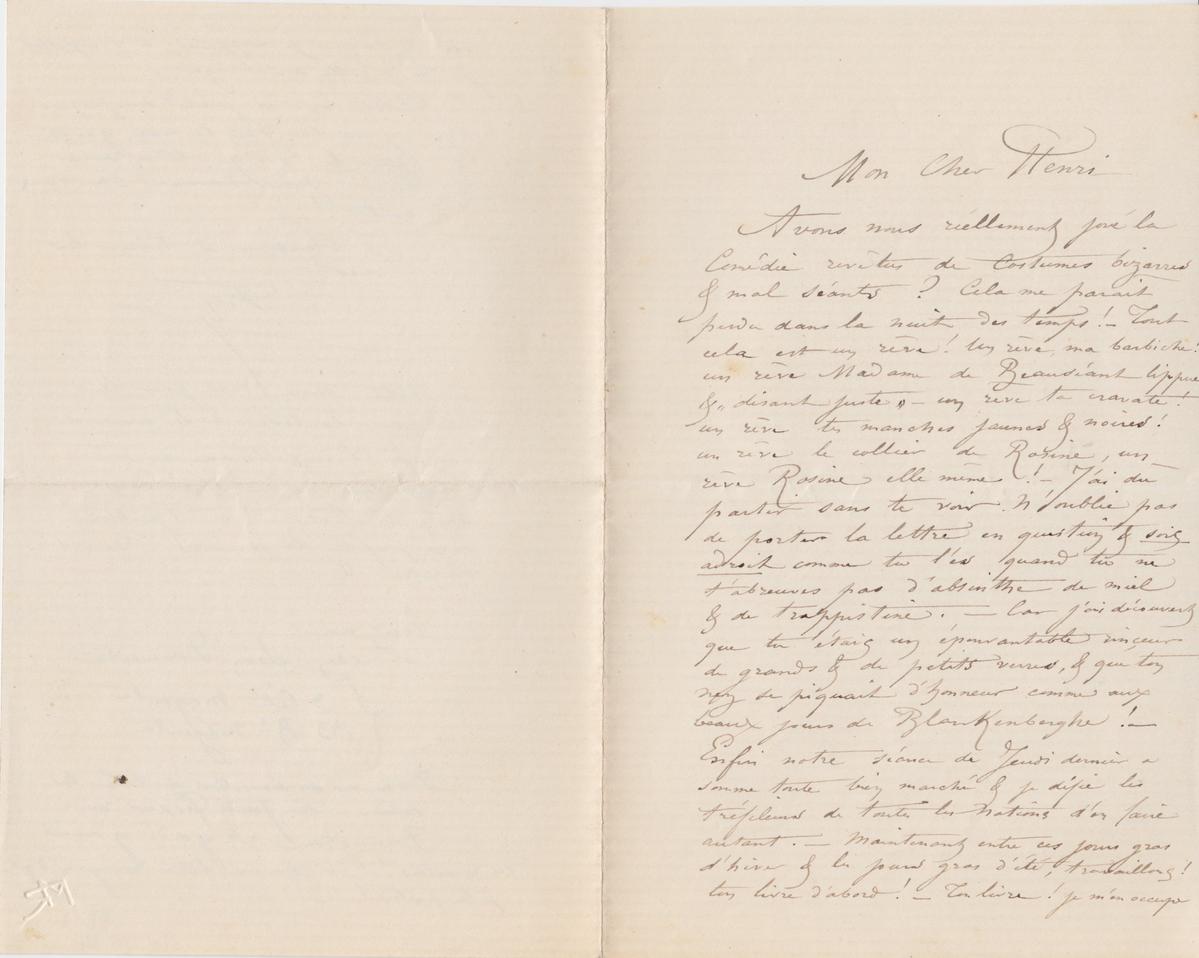 Mon Cher Henri
Avons nous réellement joué la
Comédie revêtus de Costumes bizarres
& mal séants ? Cela me parait
perdu dans la nuit des temps ! – Tout
cela est un rêve ! Un rêve, ma barbiche !
un rêve Madame de Beauséant lippue
& „ disant juste „ – un rêve ta cravate !
un rêve tes manches jaunes & noires !
un rêve le collier de Rosine, un
rêve Rosine elle même ! – J'ai du
partir sans te voir. N'oublie pas
de porter la lettre en question & sois
adroit comme tu l'es quand tu ne
t'abreuves pas d'absinthe de miel
& de trappistine. – Car j'ai découvert
que tu étais un épouvantable rinçeur
de grands & de petits verres, & que ton
nez se piquait d'honneur comme aux
beaux jours de Blankenberghe ! –
Enfin notre séance de Jeudi dernier a
somme toute bien marché & je défie les
tréfileurs de toutes les Nations d'en faire
autant. – Maintenant entre ces jours gras
d'hiver & les jours gras d'été, travaillons !
ton livre d'abord ! – Ton livre ! je m'en occupe
MK